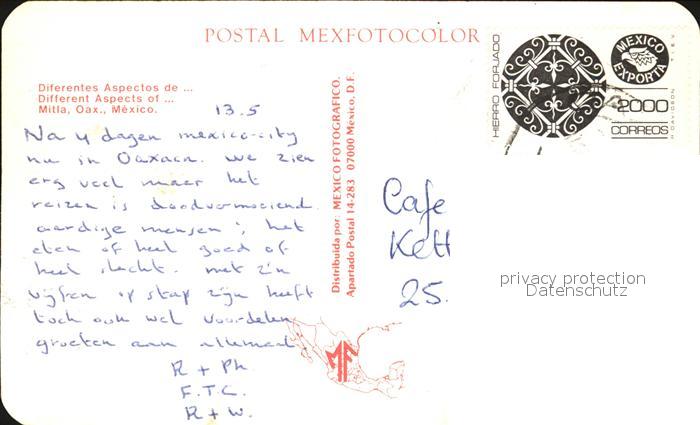 POSTAL MEXFOTOCOLOR
Diferentes Aspectos de ...
Different Aspects of ...
Mitla, Oax., México.
13.5
Na 4 dagen mexico-city
nu in Oaxaca. we zien
erg veel maar het
reizen is doodvermoeiend.
aardige mensen, het
eten of heel goed of
heel slecht. met z'n
vijfen op stap zijn heeft
toch ook wel voordelen
groeten aan allemaal
R + Ph.
F.T.C.
R + W.
Distribuida por: MEXICO FOTOGRAFICO.
Apartado Postal 14-283 07000 México, D.F.
MF
Cafe
Kett
25.
HIERRO FORJADO
MEXICO
EXPORTA
2000
CORREOS
T.I.E.V.
privacy protection
Datenschutz